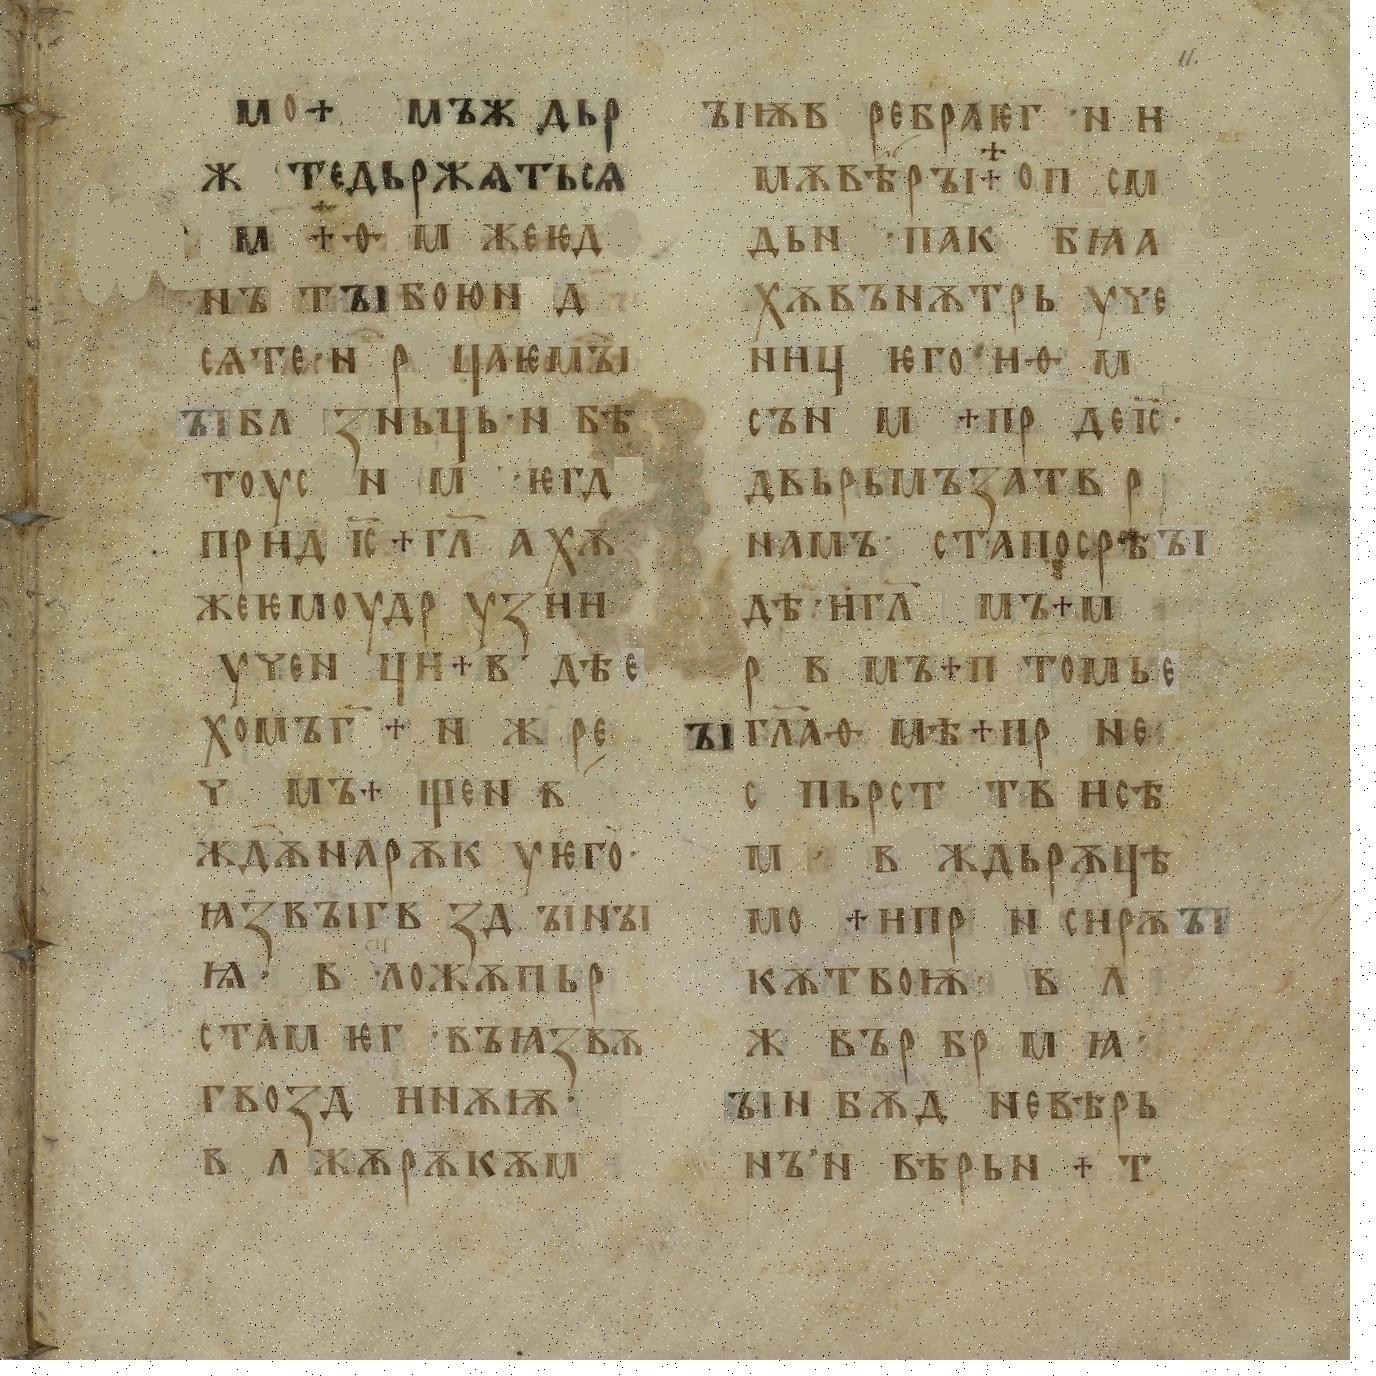 мо+ мъж дьр
ж тедьржѧтьсѧ
м +ѳ м жеѥд
нъ тъıбоюн д
сѧте·н р цаѥмъı
ъıбл ꙁньць·н бѣ
тоус н м ·ѥгд
прнд іс҃+гл҃ ахѫ
жеѥмоудр уꙁнн
учен цн+в дѣе
хомъг҃ + н ж ре
ч мъ+ щен в
жд҃ѫнарѫк уѥго·
ꙗꙁвъıгв ꙁд ъıнъı
ꙗ· в ложѫпьр
стам ѥг ·въꙗꙁвѫ
гвоꙁд ннѫıѫ·
в л жѫрѫкѫм
ъıѭв ребраѥг ·н н
мѫвѣръı+ оп см
дьн ·пак бꙗа
хѫвънѫтрь уче
ннц ѥго·н·ѳ м
сън м +пр деіс҃·
двьрьмъꙁатв р
намъ· стапосрѣъı
дѣ·нгл҃ мъ+м
р в мъ+п томье
ъıгл҃аѳ мѣ+пр не
с пьрст тв нсѣ
м · в ждьрѫцѣ
мо +нпр н снрѫъı
кѫтвоѭ· в л
ж вър бр м ꙗ·
ъıн бѫд невѣрь
нъ·н вѣрьн + т